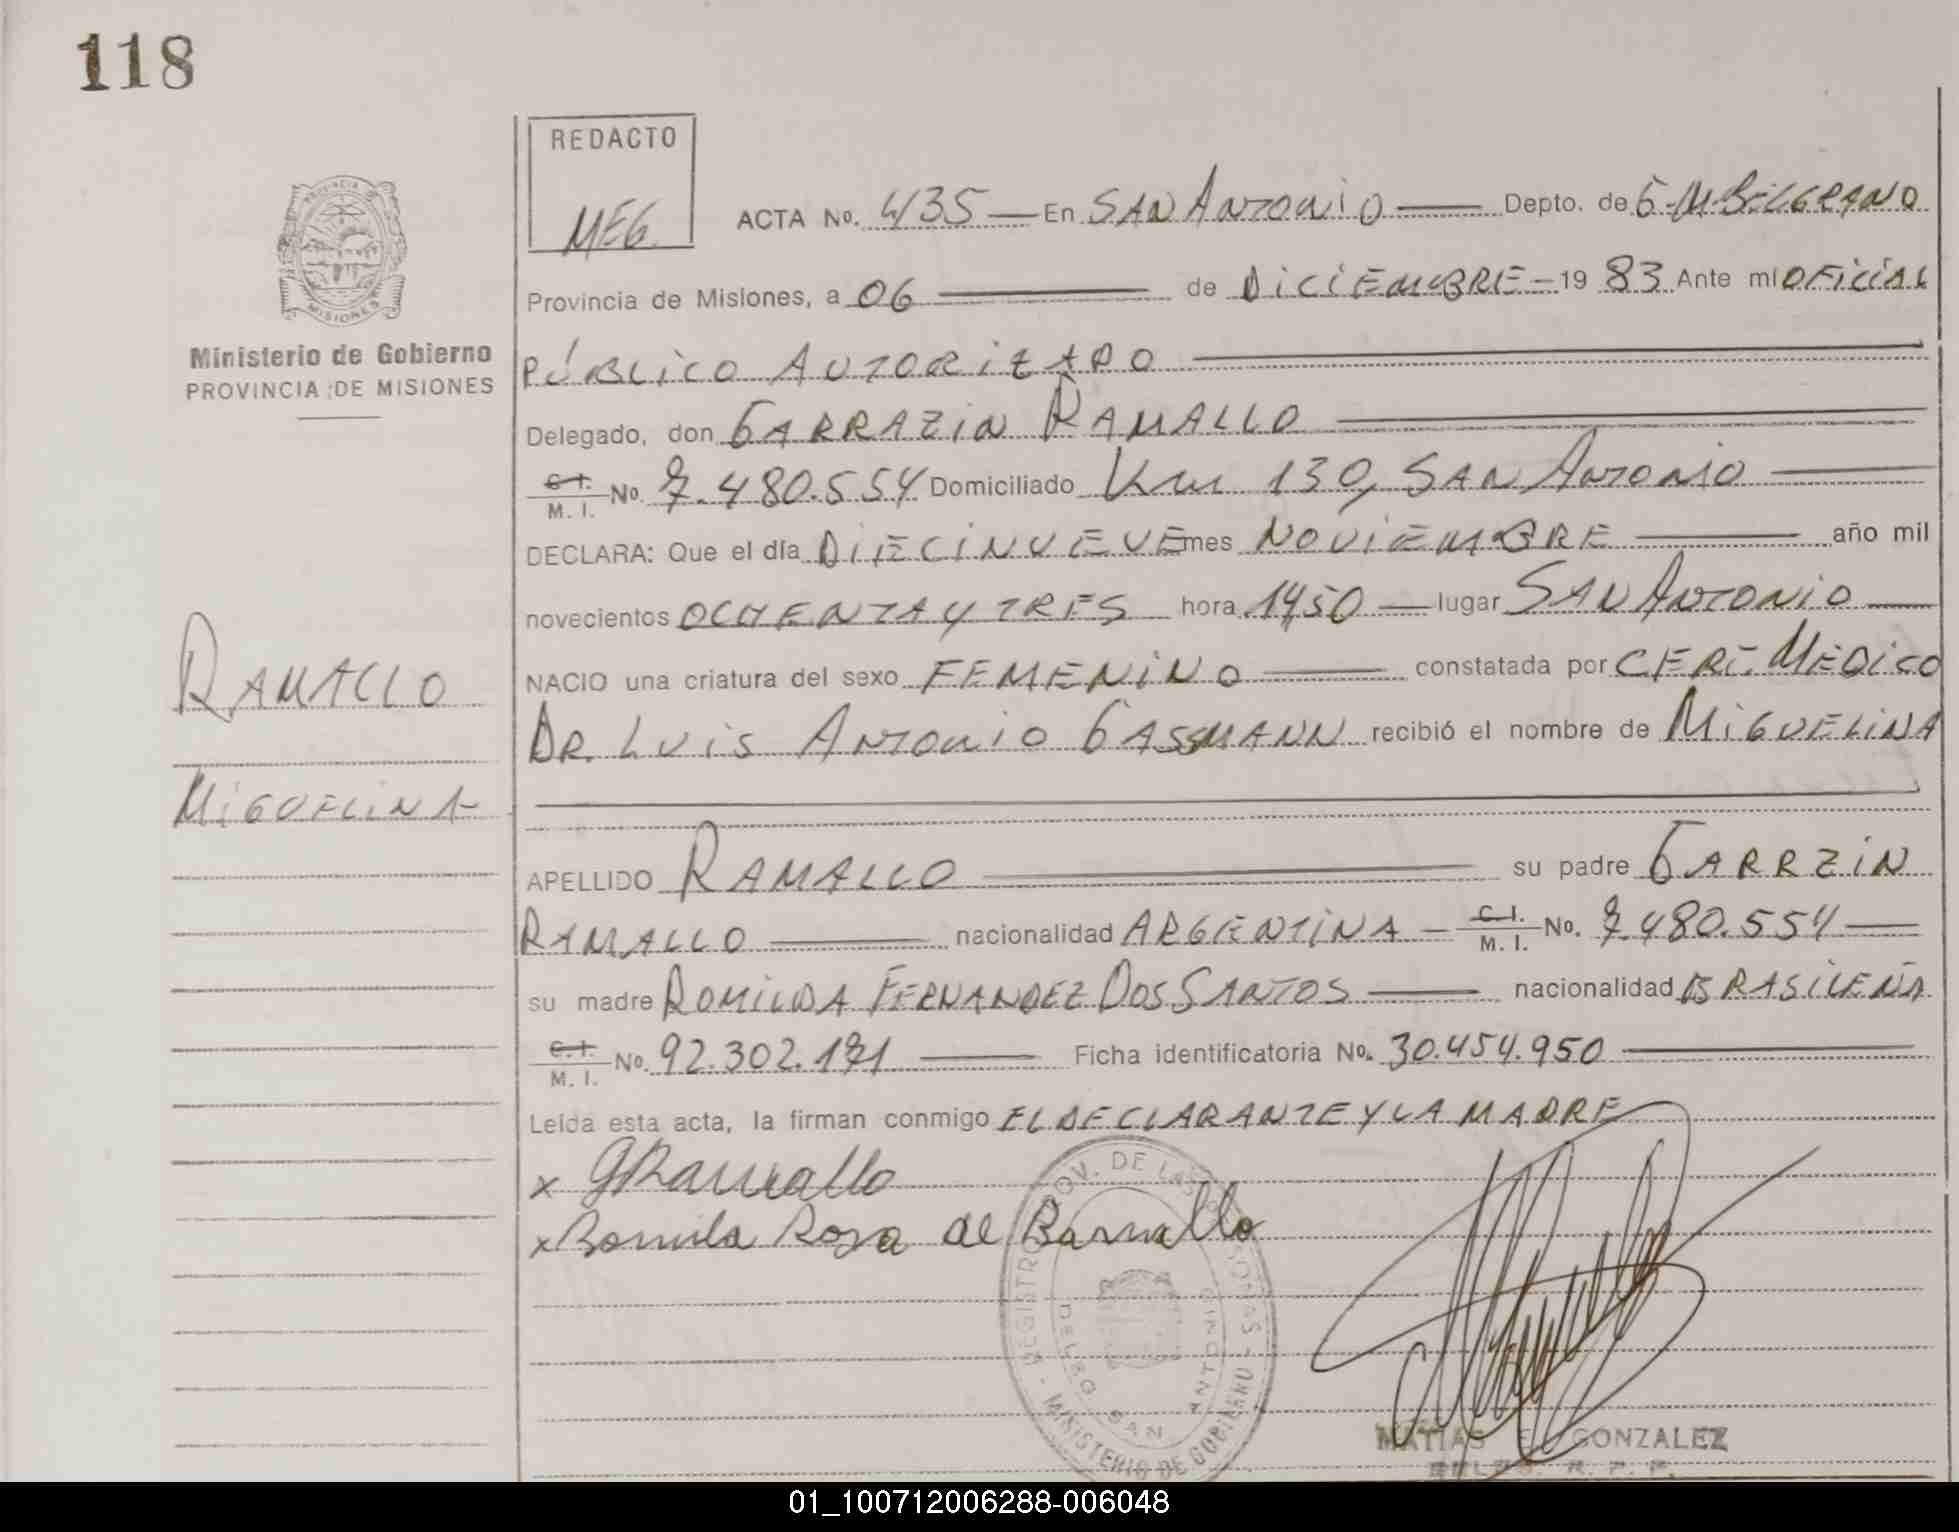 118
REDACTO
MEG.
PROVINCIA DE MISIONES
Ministerio de Gobierno
PROVINCIA DE MISIONES
ACTA No. 435 — En SAN ANTONIO — Depto. de G. M. BELGRANO
Provincia de Misiones, a 06 — de DICIEMBRE — 19 83 Ante mí OFICIAL
PÚBLICO AUTORIZADO —
Delegado, don GARRAZIN RAMALLO —
C.I. M. I. No. 7.480.554 Domiciliado Km 130, SAN ANTONIO —
DECLARA: Que el día DIECINUEVE mes NOVIEMBRE — año mil
novecientos OCHENTA Y TRES hora 14,50 — lugar SAN ANTONIO —
NACIO una criatura del sexo FEMENINO — constatada por CERT. MÉDICO
DR. LUIS ANTONIO GASSMANN recibió el nombre de MIGUELINA
RAMALLO
MIGUELINA
APELLIDO RAMALLO — su padre GARRZIN
RAMALLO — nacionalidad ARGENTINA — C.I. M. I. No. 7.480.554 —
su madre ROMILDA FERNANDEZ DOS SANTOS — nacionalidad BRASILEÑA
C.I. M. I. No. 92.302.171 — Ficha identificatoria No. 30.454.950 —
Leída esta acta, la firman conmigo EL DECLARANTE Y LA MADRE
x GRamallo
x Romila Rosa de Ramallo
REGISTRO PROV. DE LAS PERSONAS - MINISTERIO DE GOBIERNO
DELEG. SAN ANTONIO
MATIAS E. GONZALEZ
01_100712006288-006048